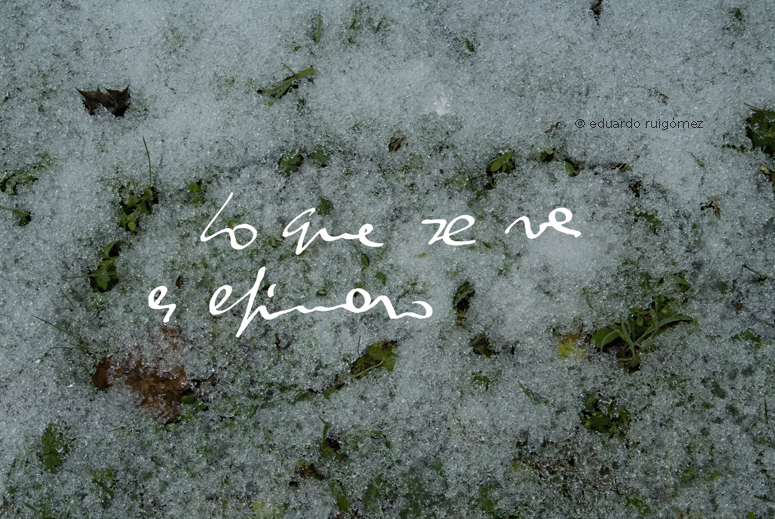 © eduardo ruigómez
Lo que se ve
es efimero